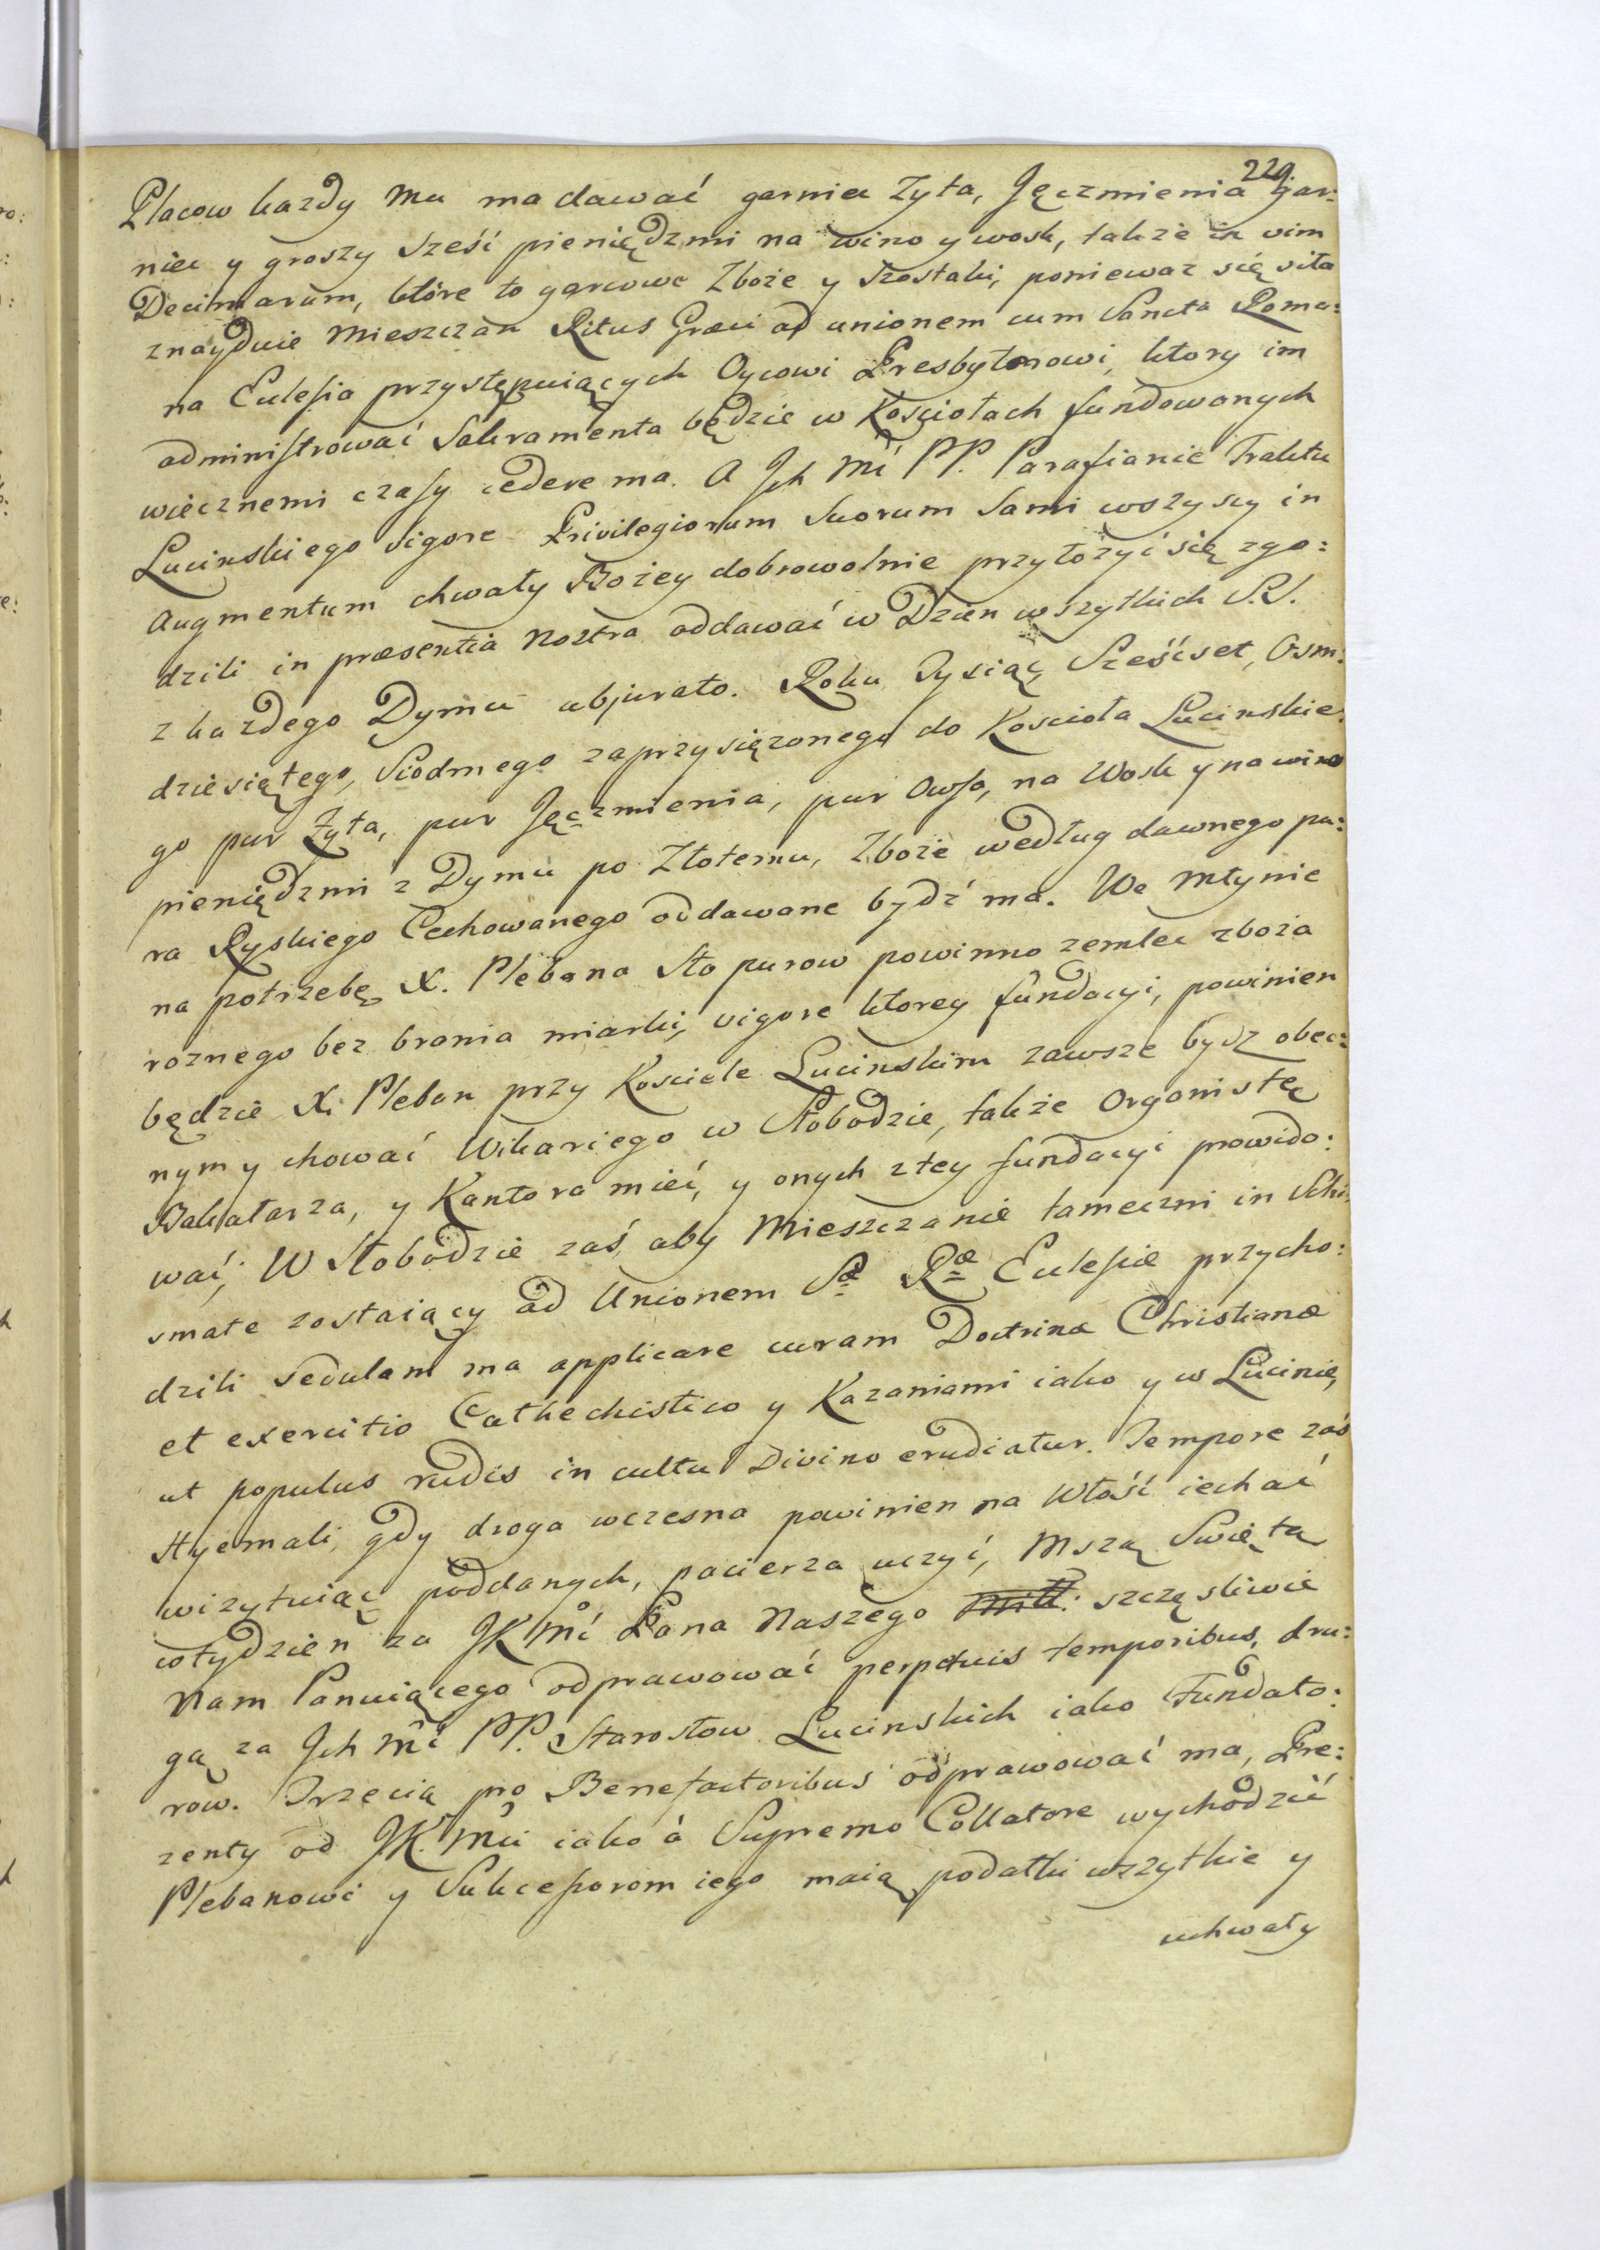 229.
Placow kazdy Mu ma dawać garniec Zyta, Jęczmienia gar:
niec y groszy sześć pieniędzmi na wino y wosk, także in vim
Decimarum, które to garcowe Zboże y Szostaki, poniewaz się siła
znayduie Mieszczan Ritus Græci ad unionem cum Sancta Roma:
na Eclesia przystępuiących Oycowi Presbyterowi, ktory im
administrować Sakramenta będzie w Kościołach fundowanych
wiecznemi czasy cedere ma. A Jch Mć PP. Parafianie Traktu
Lucinskiego vigore Privilegiorum Suorum Sami wszyscy in
Augmentum chwały Bożey dobrowolnie przyłożyć się zgo:
dzili in præsentia Nostra oddawać w Dzien wszytkich S.S.
z każdego Dymu abjurato. Roku Tysiąc Sześćset, Osm:
dziesiątego, Siodmego zaprzysięzonego do Koscioła Lucinskie:
go pur Żyta, pur Jęczmienia, pur Owsa, na Wosk y na wino
pieniędzmi z Dymu po Złotemu, Zboże według dawnego pu:
ra Ryskiego Cechowanego oddawane bydź ma. We Młynie
na potrzebę X. Plebana Sto purow powinno zemlec zboża
roznego bez brania miarki, vigore ktorey fundacyi, powinien
będzie X. Pleban przy Kosciele Lucinskim zawsze bydz obec:
nym y chować Wikariego w Słobodzie, także Organistę
Bakałarza, y Kantora mieć, y onych z tey fundacyi prowido:
wać; W Słobodzie zaś, aby Mieszczanie tameczni in Schi:
smate zostaiący ad Unionem Sæ Ræ Eclesiæ przycho:
dzili sedulam ma applicare curam Doctrinæ Christianæ
et exercitio Cathechistico y Kazaniami iako y w Lucinie,
ut populus rudis in cultu Divino erudiatur. Tempore zaś
Hyemali, gdy droga wczesna powinien na Włość iechać
wizytuiąc poddanych, pacierza uczyć, Mszą Swiętą
cotydzien za JK Mć Pana Naszego szczęsliwie
Nam Panuiącego odprawować perpetuis temporibus, dru:
gą za Jch Mć PP. Starostow Lucinskich iako Fundato:
row. Trzecią pro Benefactoribus odprawować ma, Pre:
zenty od JK. Mci iako à Supremo Collatore wychodzić
Plebanowi y Sukcessorom iego maią podatki wszytkie y
uchwały